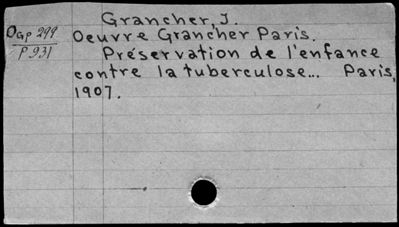 Grancher, J.
OGP 299
P931
Oeuvre Grancher Paris.
Préservation de l'enfance
contre la tuberculose... Paris,
1907.